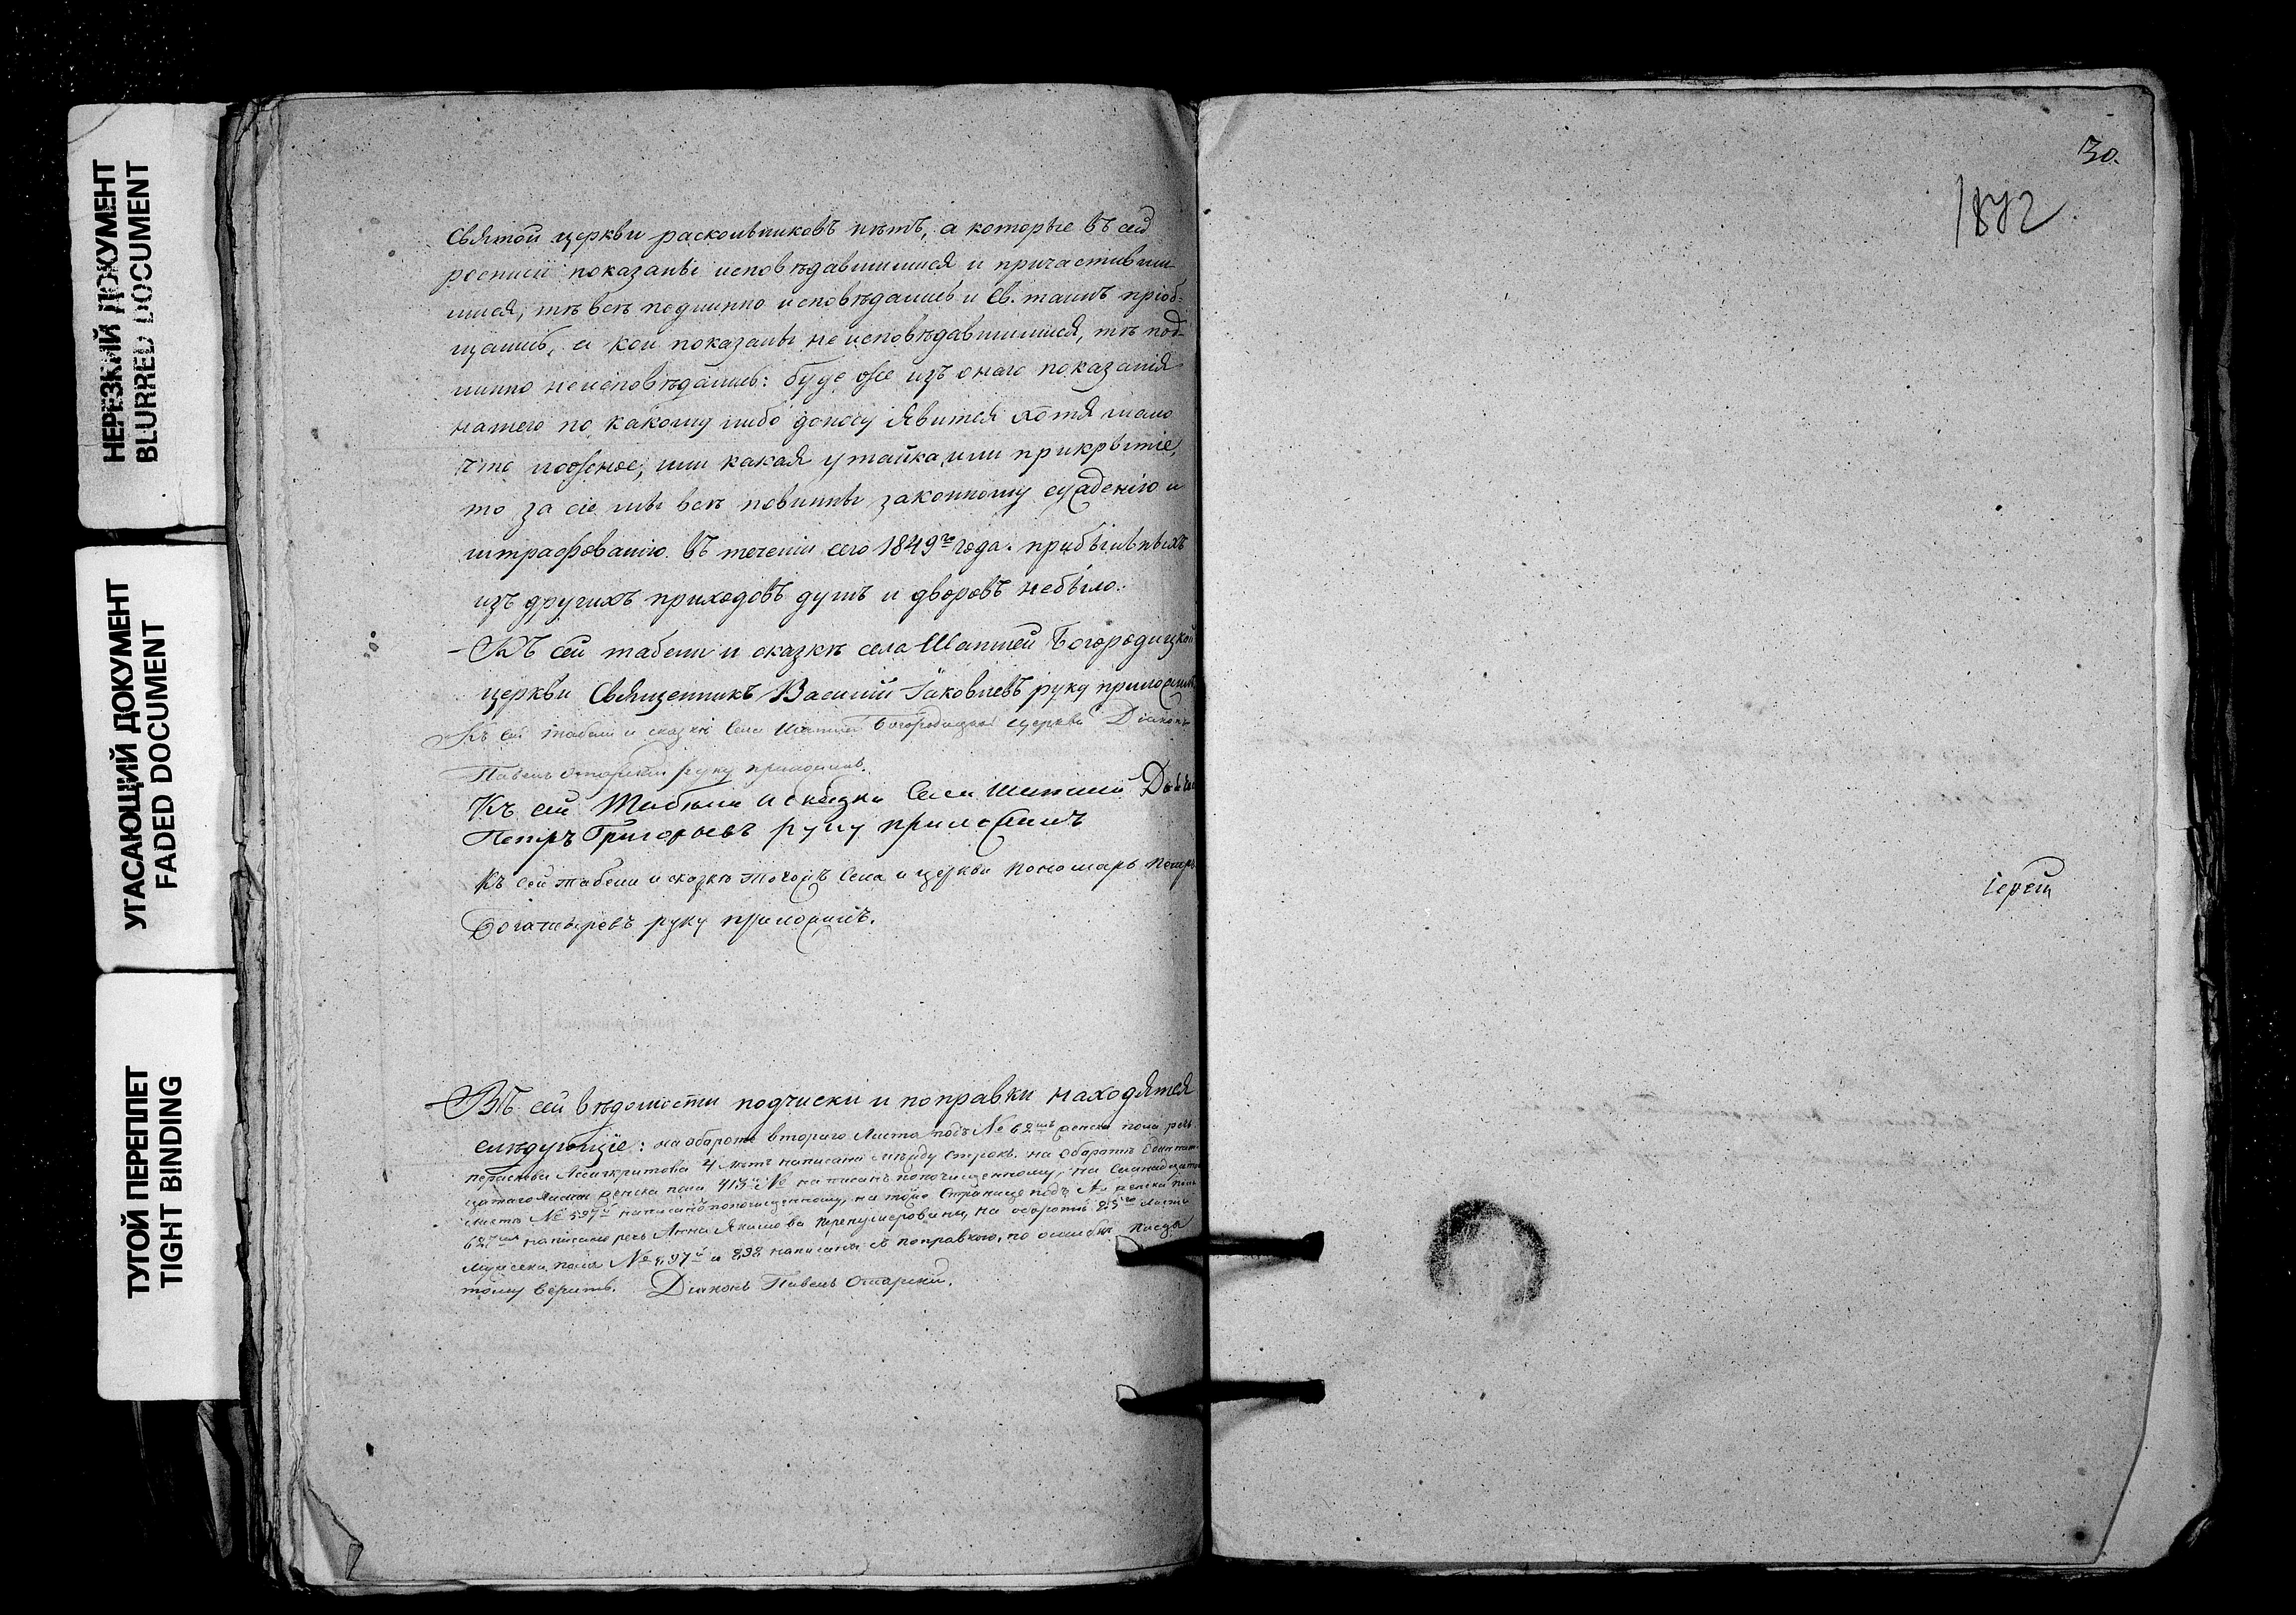 НЕРЕЗКИЙ ДОКУМЕНТ
BLURRED DOCUMENT
УГАСАЮЩИЙ ДОКУМЕНТ
FADED DOCUMENT
ТУГОЙ ПЕРЕПЛЕТ
TIGHT BINDING
святой церкви раскольниковъ нѣтъ, а которые въ сей
росписи показаны исповѣдавшимися и причастивши-
мися, тѣ всѣ подлинно исповѣдались и св. таинъ пріоб-
щались, а кои показаны неисповѣдавшимися, тѣ под-
линно неисповѣдались: буде же изъ онаго показанія
нашего по какому либо доносу явится хотя мало
что ложное, или какая утайка, или прикрытіе,
то за сіе мы всѣ повинны законному суждению и
штрафованію. Въ теченіи сего 1849го года. прибыльныхъ
изъ другихъ приходовъ душъ и дворовъ небыло.
Къ сей табели и сказкѣ села Шапшей Богородицкой
церкви Священникъ Василий Іаковлевъ руку приложилъ
Къ сей табели и сказкѣ села Шапшей Богородицкой церкви Діаконъ
Павелъ руку приложилъ.
Къ сей Табели и сказки Села
Петръ Григорьевъ руку приложилъ
Къ сей табели и сказкѣ тогожъ Села и церкви пономарь Петръ
Богатыревъ руку приложилъ.
Въ сей вѣдомости подчиски и поправки находятся
слѣдующіе: на оборотѣ втораго листа подъ № 62мъ женска пола речь
4 лѣтъ написана между строкъ. на оборотѣ
листа женска пола 413й № написанъ поподчищенному, на
листѣ № 597й написанъ поподчищенному, на тойже странице подъ № женска пола
627мъ написано речь Анна Якимова на оборотѣ 25го листа
мужеска пола № и 898 написаны съ поправкою, по ошибкѣ
тому верить. Діаконъ Павелъ
30.
1872
іерей